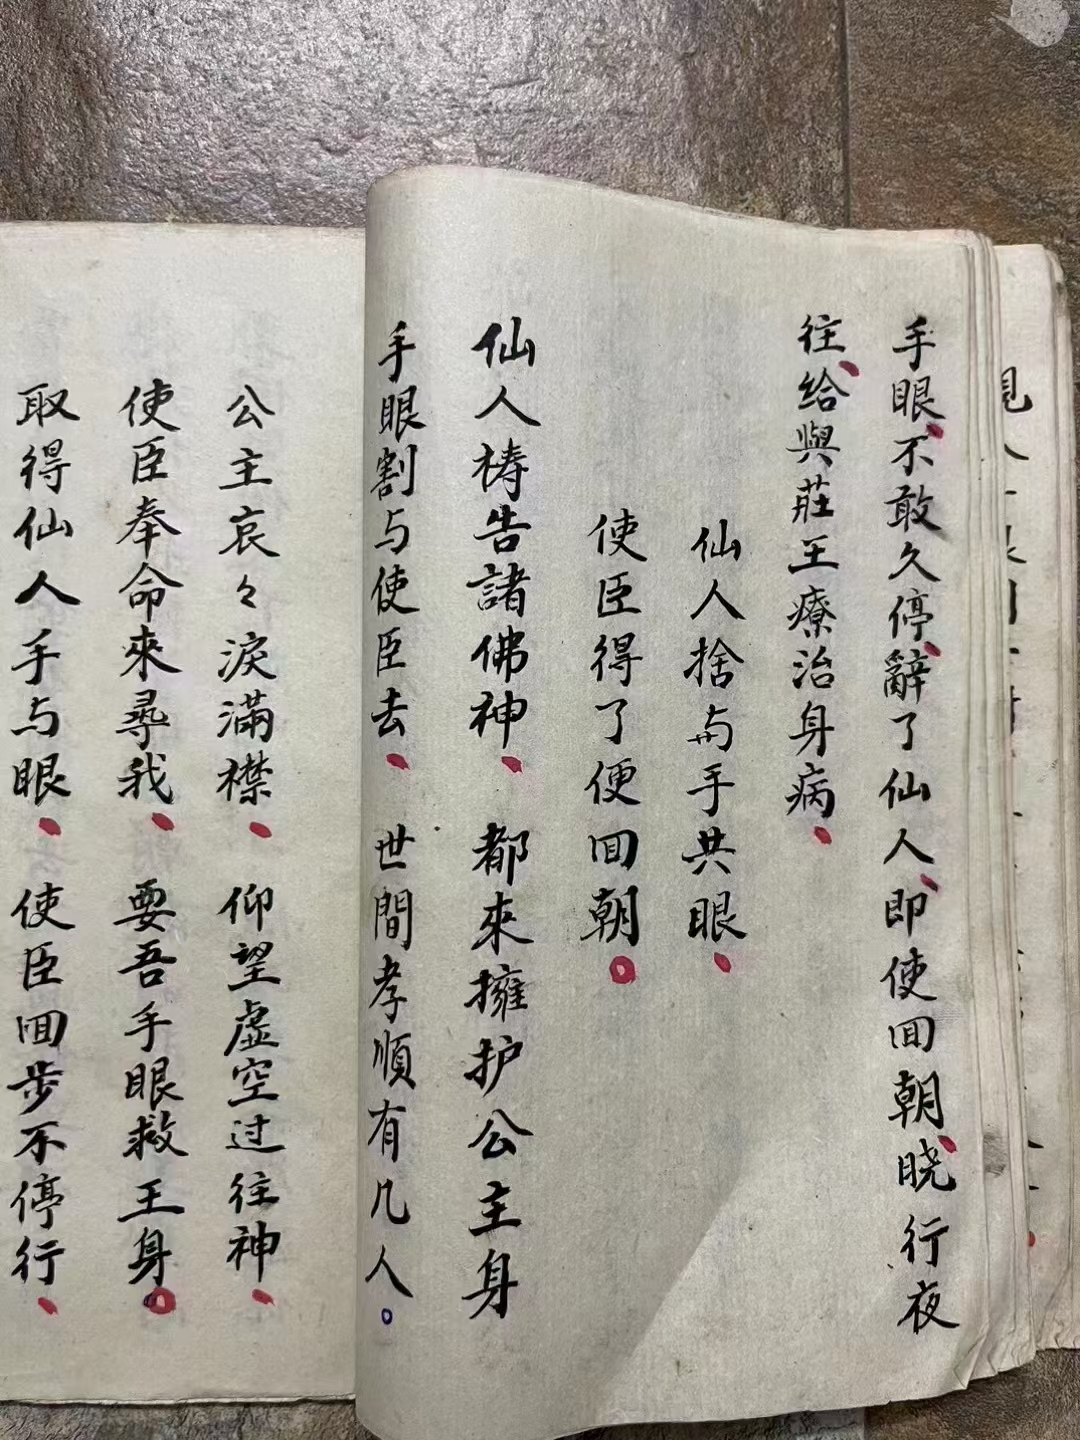 手眼、不敢久停、辭了仙人、即使回朝、晓行夜
往、給與莊王療治身病、
仙人捨与手共眼、
使臣得了便回朝。
仙人梼告諸佛神、都來擁护公主身
手眼割与使臣去、世間孝順有几人。
公主哀々淚滿襟、仰望虛空过往神、
使臣奉命來尋我、要吾手眼救王身。
取得仙人手与眼、使臣回步不停行、